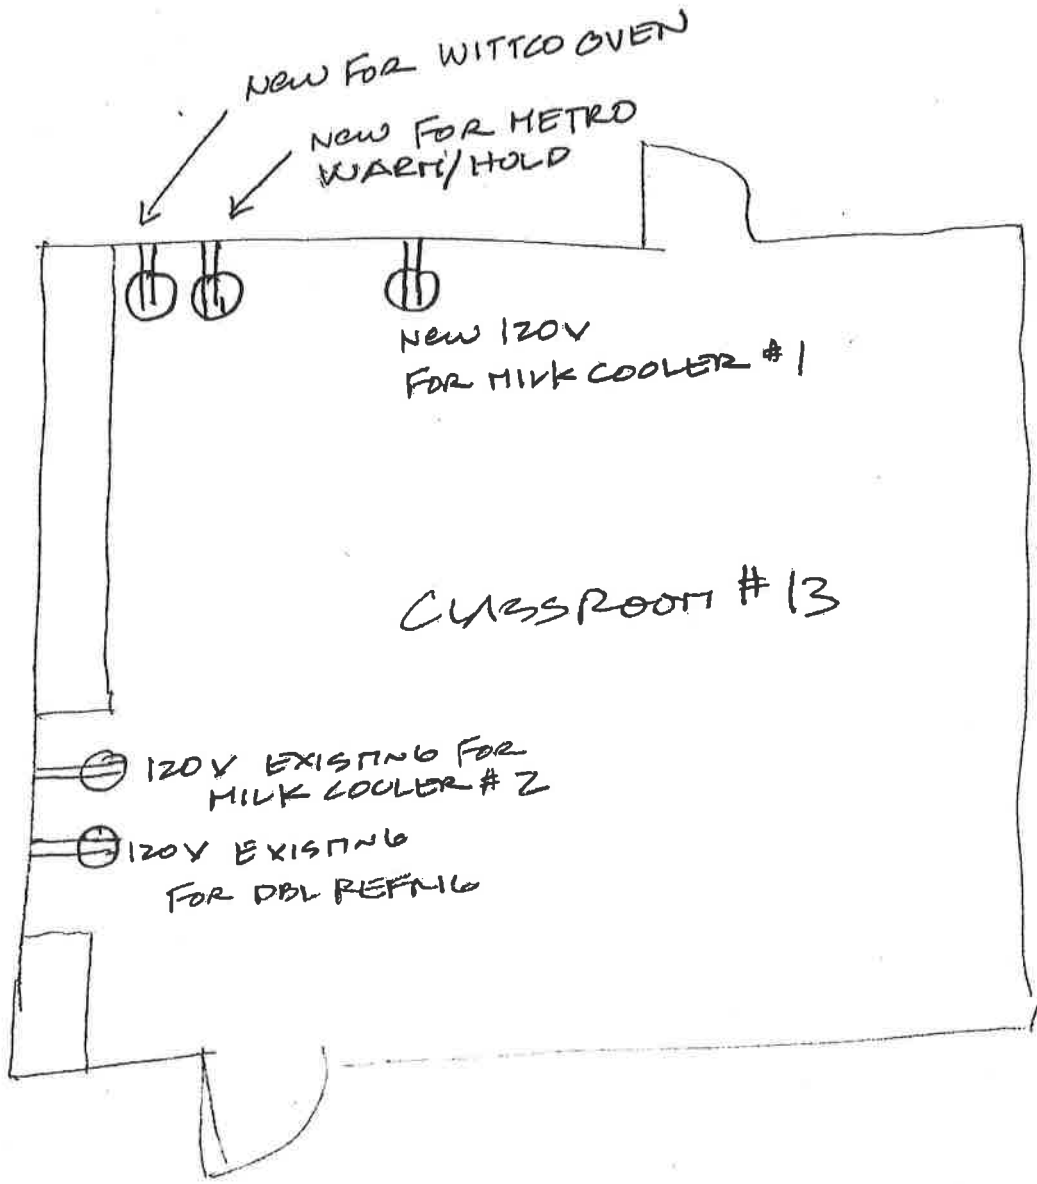 NEW FOR WITTCO OVEN
NEW FOR METRO
WARM/HOLD
NEW 120V
FOR MILK COOLER #1
CLASSROOM #13
120V EXISTING FOR
MILK COOLER #2
120V EXISTING
FOR DBL REFRIG